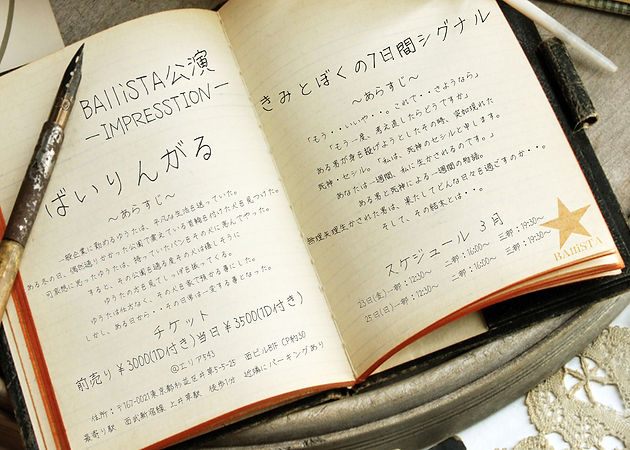 BAlliSTA公演
－IMPRESSTION－
ばいりんがる
～あらすじ～
一般企業に勤めるゆうたは、平凡な生活を送っていた。
ある冬の日、偶然通りかかった公園で震えている首輪を付けた犬を見つけた。
可哀想に思ったゆうたは、持っていたパンをその犬に恵んでやった。
すると、その公園を通る度その犬は嬉しそうに
ゆうたの方を見てしっぽを振ってくる。
ゆうたは仕方なく、その犬を家で預かる事にした。
しかし、ある日から・・その日常は一変する事となった。
チケット
前売り¥3000(1D付き)当日¥3500(1D付き)
@エリア543
住所：〒167-0021東京都杉並区井草5-5-25 西ビルB1F CP約30
最寄り駅 西武新宿線 上井草駅 徒歩1分 近場にパーキングあり
きみとぼくの7日間シグナル
～あらすじ～
「もう・・いいや・・。これで・・さようなら」
「もう一度、考え直したらどうですか」
ある男が身を投げようとしたその時、突如現れた
死神・セシル。「私は、死神のセシルと申します。
あなたは一週間、私に生かされるのです。」
ある男と死神による一週間の物語。
無理矢理生かされた男は、果たしてどんな日々を過ごすのか・・。
そして、その結末とは・・。
スケジュール 3月
23日(金)一部：12:30～ 二部：16:00～ 三部：19:30～
25日(日)一部：12:30～ 二部：16:00～ 三部：19:30～
BAlliSTA